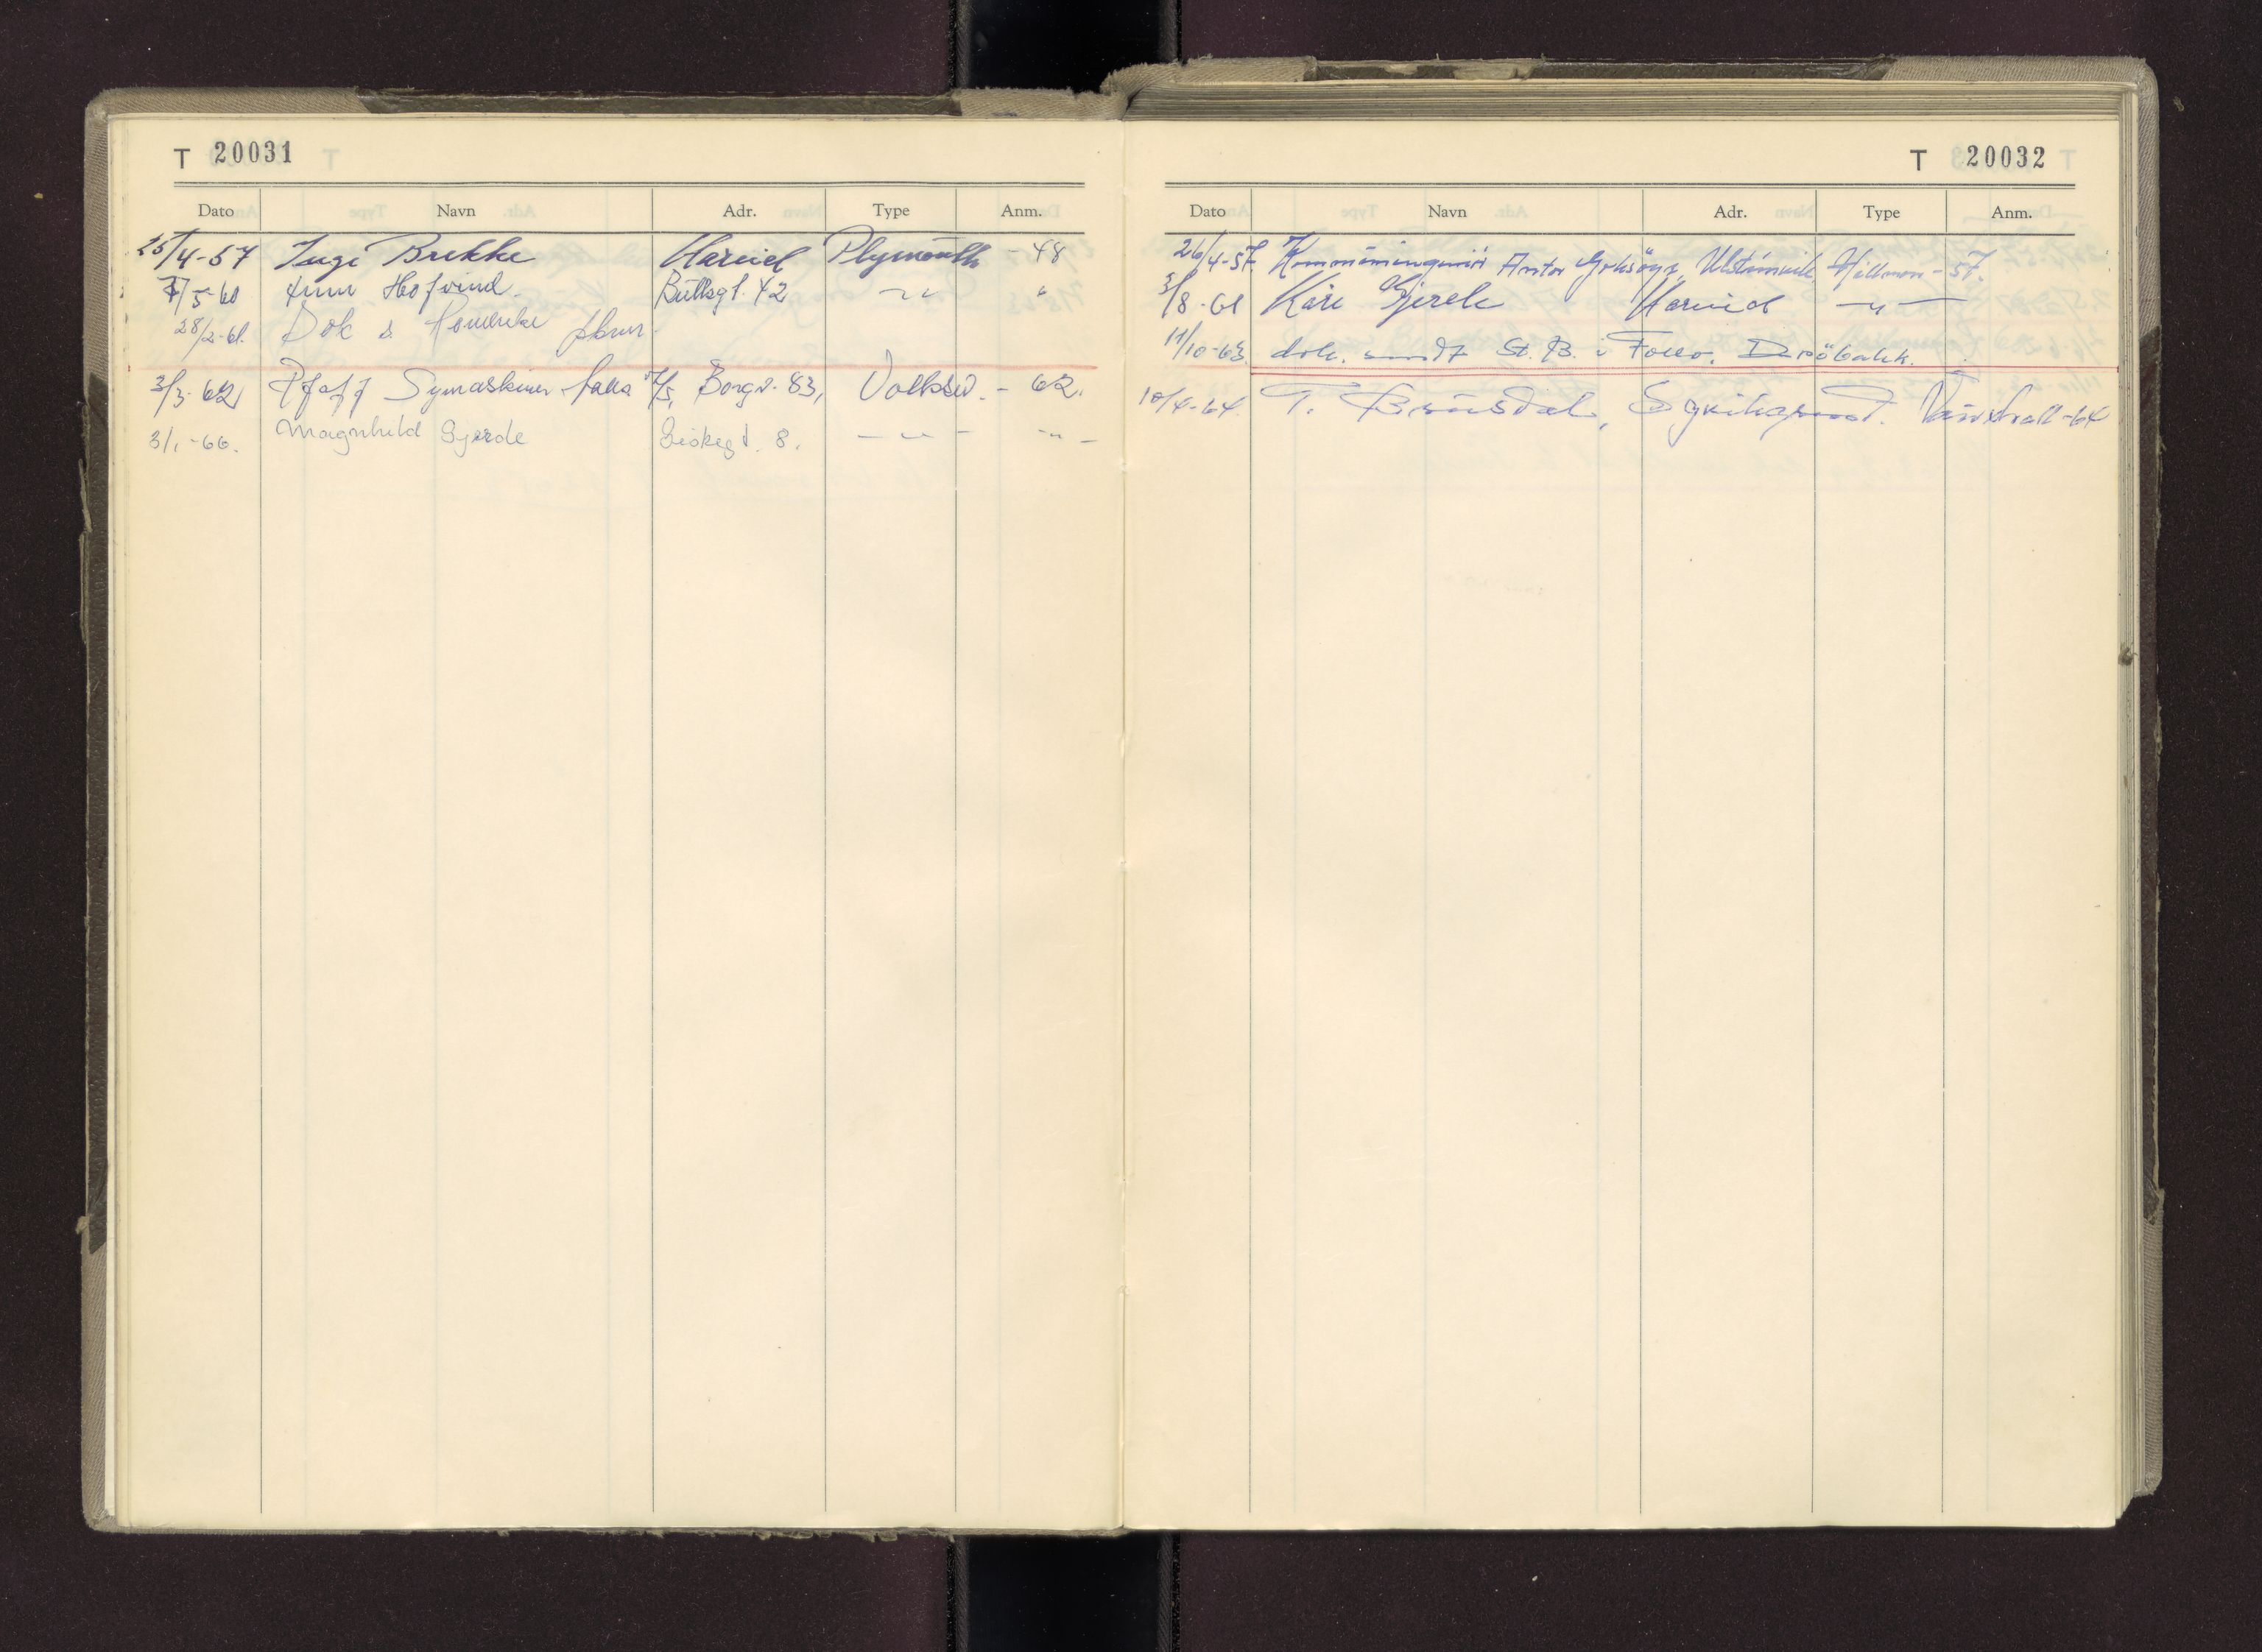 T 20031
Dato Navn Adr. Type Anm.
25/4-57 Inge Brekke Hareid Plymouth - 48
7/5-60 Hofvind. Butksgt. 42 — " — "
28/2-61. Dok s. Romerike
3/3-62 Pfaff Symaskiner A/S, Borgv. 83, Volksw. - 62.
3/1-66. Magnhild Gjerde Giskegt. 8. — " — — " —
T 20032
Dato Navn Adr. Type Anm.
26/4-57. Anton Ulsteinvik, Hillman - 57.
3/8-61 Kåre Gjerde Hareid — " —
11/10-63. dok. sendt St. B. i Follo. Drøbakk.
10/4-64. T. Brusdal, Spjelkavik. Vauxhall -64